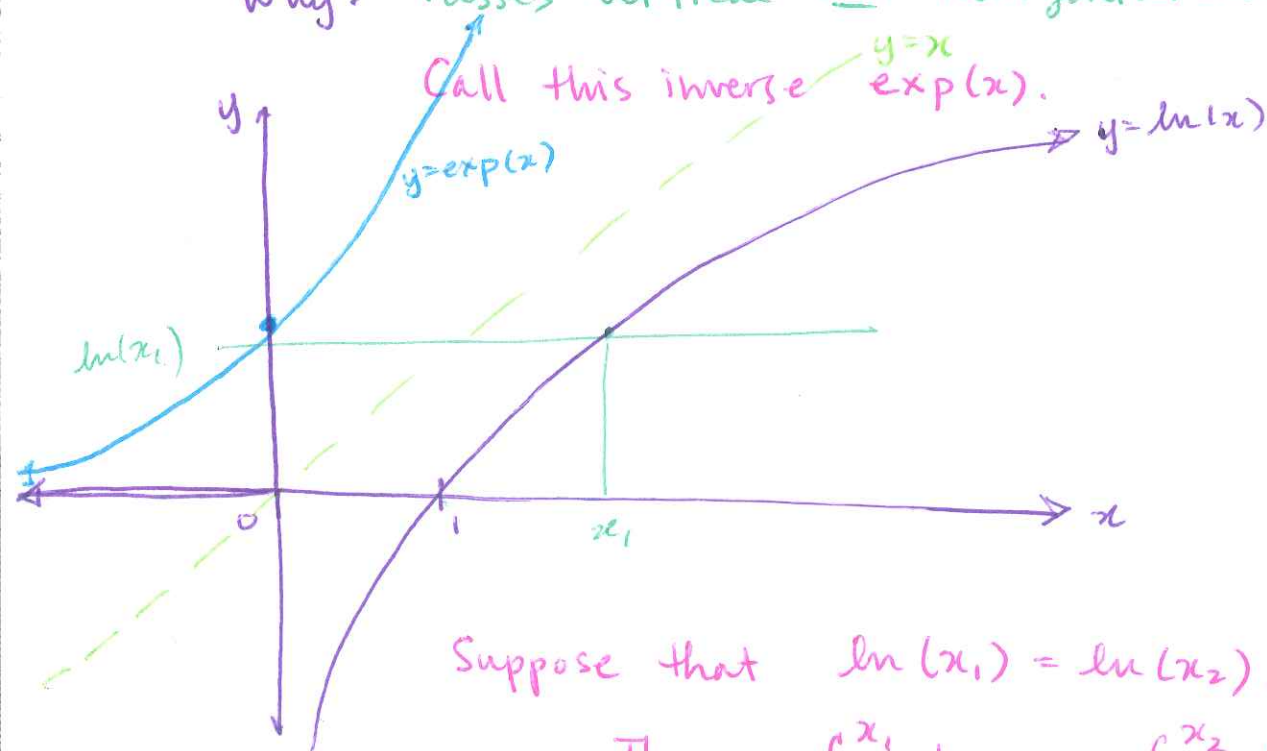 y=x
Call this inverse exp(x).
y
y=ln(x)
y=exp(x)
ln(x₁)
0
1
x₁
x
Suppose that ln(x₁) = ln(x₂)